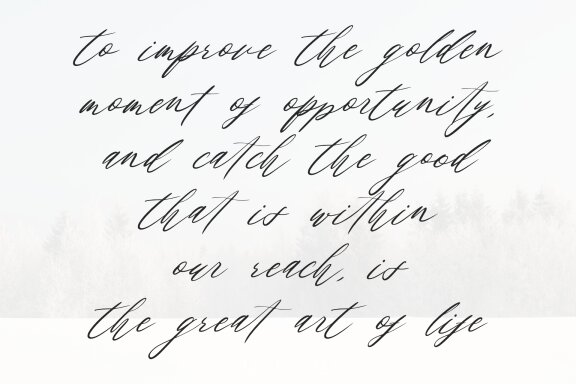 to improve the golden
moment of opportunity,
and catch the good
that is within
our reach, is
the great art of life